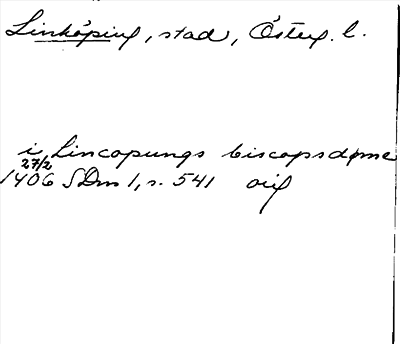 Linköping, stad, Österg. l.
i Lincopungs biscopsdøme
27/2
1406 SDns 1, s. 541 orig